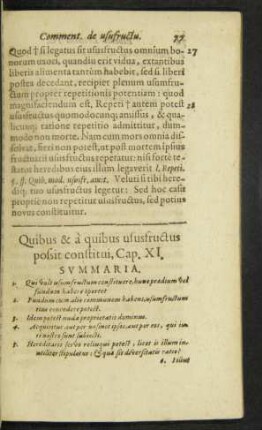 Comment. de usufructu. 77
Quod † si legatus sit ususfructus omnium bo- 27
norum uxori, quandiu erit vidua, extantibus
liberis alimenta tantùm habebit, sed si liberi
postea decedant, recipiet plenum usumfru-
ctum propter repetitionis potentiam: quod
magis faciendum est, Repeti † autem potest 28
ususfructus quomodocunque amissus, & qua-
licunque ratione repetitio admittitur, dum-
modo non morte. Nam cum mors omnia dis-
solvat, fieri non potest, ut post mortem ipsius
fructuarii ususfructus repetatur: nisi fortè te-
stator heredibus eius illum legaverit l. Repeti.
5. ff. Quib. mod. ususfr. amit. Veluti si tibi here-
dibusq. tuo ususfructus legetur: Sed hoc casu
propriè non repetitur ususfructus, sed potius
novus constituitur.
Quibus & à quibus ususfructus
possit constitui, Cap. XI.
SUMMARIA.
1. Qui vult usumfructum constituere, hunc praedium vel
fundum habere oportet
2. Fundum cum alio communem habens, usumfructum
eius vendere potest.
3. Idem potest nudae proprietatis dominus.
4. Acquiritur aut per nosmet ipsos, aut per eos, qui iu-
ri nostro sunt subiecti.
5. Hereditario servo relinqui potest, licet is illum in-
utiliter stipulatur: & quae sit diversitatis ratio?
6. Filius